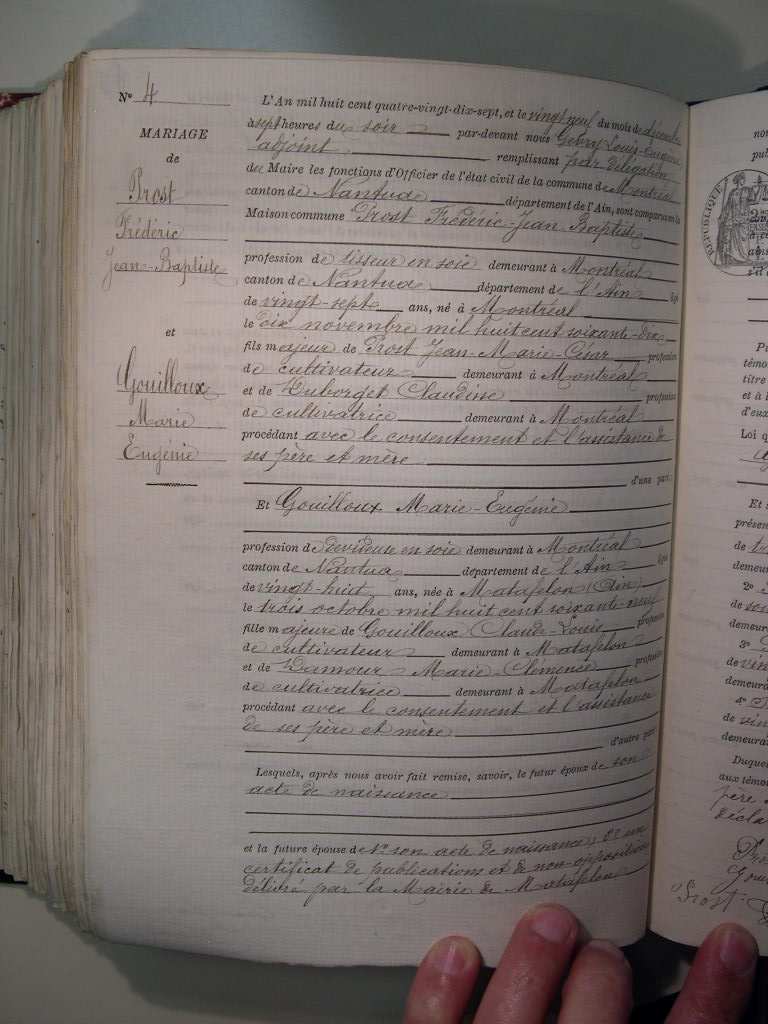 N° 4
MARIAGE
de
Prost
Frédéric
Jean-Baptiste
et
Gouilloux
Marie
Eugénie
L'An mil huit cent quatre-vingt-dix-sept, et le vingt neuf du mois de décembre
à sept heures du soir par-devant nous Louis-Eugène
adjoint remplissant par délégation
du Maire les fonctions d'Officier de l'état civil de la commune de Montréal
canton de Nantua département de l'Ain, sont comparus en la
Maison commune Prost Frédéric-Jean Baptiste
profession de tisseur en soie demeurant à Montréal
canton de Nantua département de l'Ain âgé
de vingt-sept ans, né à Montréal
le dix novembre mil huit cent soixante-dix
fils majeur de Prost Jean-Marie-César profession
de cultivateur demeurant à Montréal
et de Huborget Claudine profession
de cultivatrice demeurant à Montréal
procédant avec le consentement et l'assistance de
ses père et mère
d'une part
Et Gouilloux Marie-Eugénie
profession de dévideuse en soie demeurant à Montréal
canton de Nantua département de l'Ain âgée
de vingt-huit ans, née à Matafelon (Ain)
le trois octobre mil huit cent soixante-neuf
fille majeure de Gouilloux Claude-Louis profession
de cultivateur demeurant à Matafelon
et de Damour Marie-Clémence profession
de cultivatrice demeurant à Matafelon
procédant avec le consentement et l'assistance
de ses père et mère
d'autre part
Lesquels, après nous avoir fait remise, savoir, le futur époux de son
acte de naissance
et la future épouse de 1° son acte de naissance, 2° un
certificat de publications et de non-opposition
délivré par la Mairie de Matafelon
RÉPUBLIQUE
témo
titre
et à l
d'eux
Loi q
Et s
présen
de
demeu
2°
de
demeura
3°
de vin
demeura
4°
de vin
demeura
Duque
aux témoi
père
décla
Pro
Gou
Prost